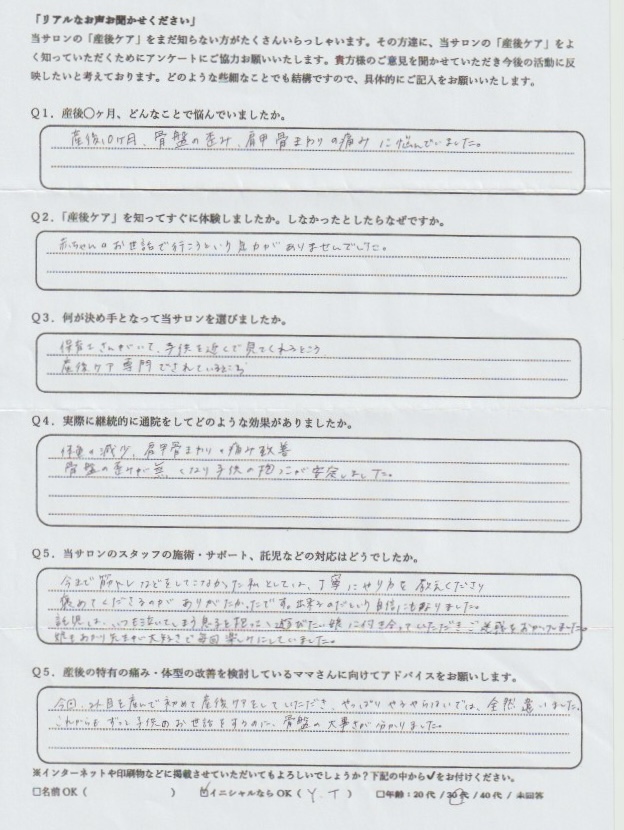 「リアルなお声お聞かせください」
当サロンの「産後ケア」をまだ知らない方がたくさんいらっしゃいます。その方達に、当サロンの「産後ケア」をよ
く知っていただくためにアンケートにご協力お願いいたします。貴方様のご意見を聞かせていただき今後の活動に反
映したいと考えております。どのような些細なことでも結構ですので、具体的にご記入をお願いいたします。
Q1．産後〇ヶ月、どんなことで悩んでいましたか。
産後10ヶ月、骨盤の歪み、肩甲骨まわりの痛みに悩んでいました。
Q2．「産後ケア」を知ってすぐに体験しましたか。しなかったとしたらなぜですか。
赤ちゃんのお世話で行こうという気力がありませんでした。
Q3．何が決め手となって当サロンを選びましたか。
保育士さんがいて、子供を近くで見てくれるところ
産後ケア専門でされているところ
Q4．実際に継続的に通院をしてどのような効果がありましたか。
体重の減少、肩甲骨まわりの痛み改善
骨盤の歪みが無くなり子供の抱っこが安定しました。
Q5．当サロンのスタッフの施術・サポート、託児などの対応はどうでしたか。
今まで筋トレなどをしてこなかった私としては、丁寧にやり方を教えくださり
褒めてくださるのがありがたかったです。出来るのだという自信にも繋りました。
託児は、いつも泣いてしまう息子を抱っこ、遊びたい娘に付き合っていただきご迷惑をおかけしました。
娘もあかり先生が大好きで毎回楽しみにしていました。
Q5．産後の特有の痛み・体型の改善を検討しているママさんに向けてアドバイスをお願いします。
今回、2人目を産んで初めて産後ケアをしていただき、やっぱりやるやらないでは、全然違いました。
これからもずっと子供のお世話をするのに、骨盤の大事さが分かりました。
※インターネットや印刷物などに掲載させていただいてもよろしいでしょうか？下記の中から✓をお付けください。
□名前OK（　　　　　）　☑イニシャルならOK（Y.T）　□年齢：20代 / 30代 / 40代 / 未回答